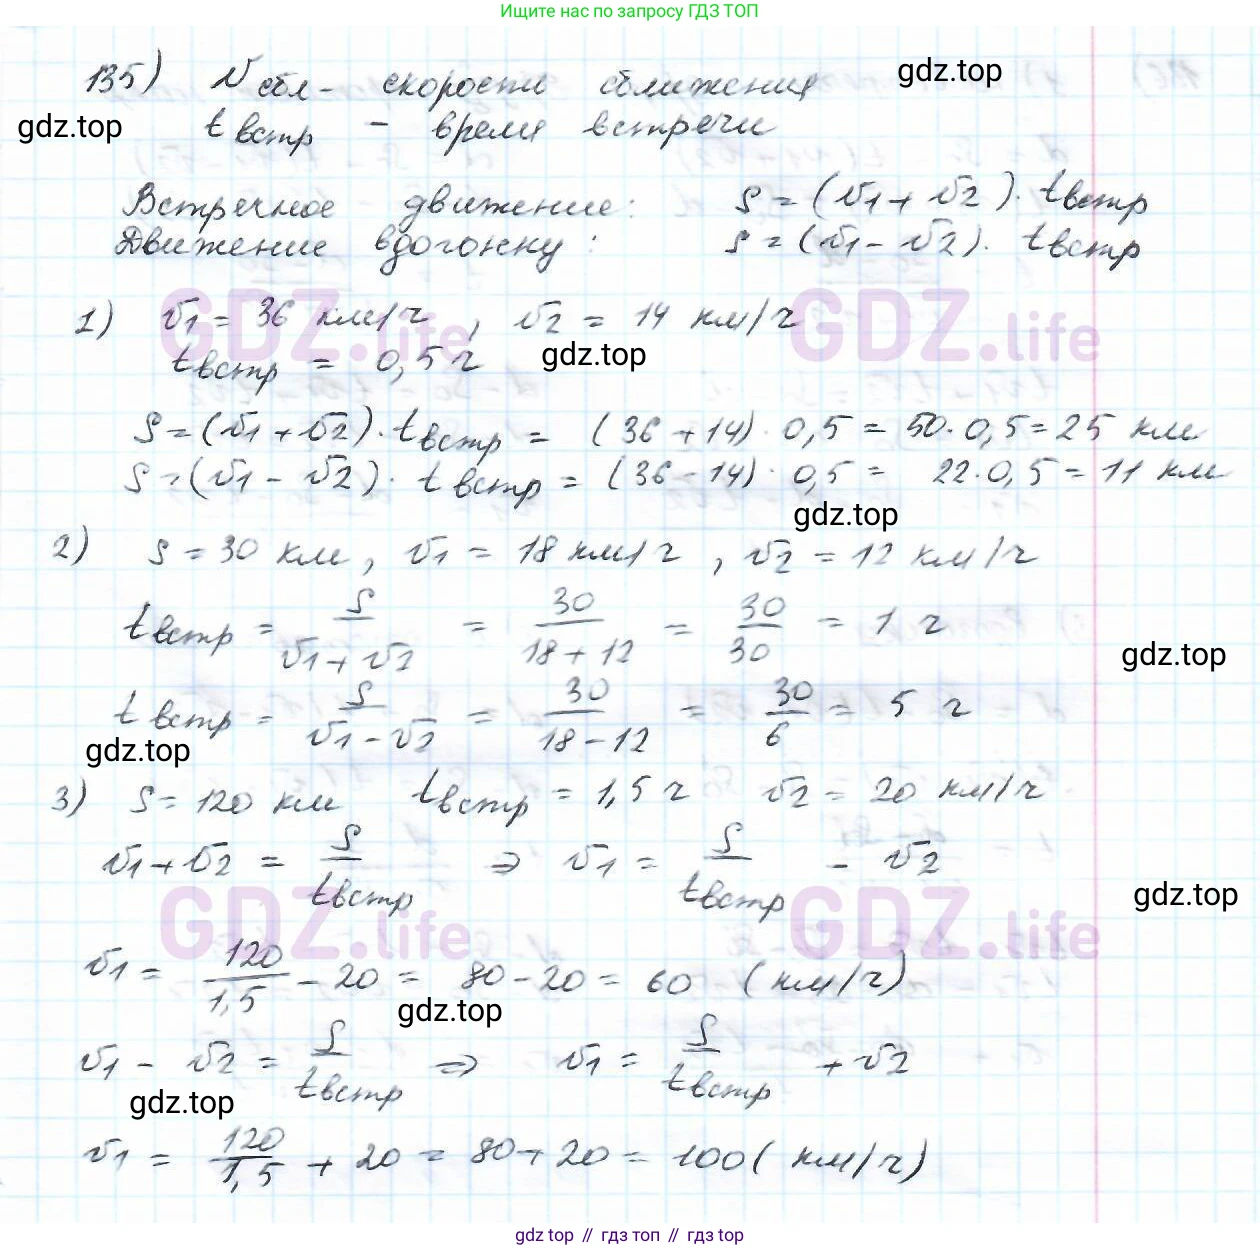 Ищите нас по запросу ГДЗ ТОП
135) Vсбл - скорости сближения
gdz.top
gdz.top
tвстр - время встречи
Встречное движение: S = (v1 + v2) · tвстр
Движение вдогонку: S = (v1 - v2) · tвстр
GDZ.life GDZ.life
1) v1 = 36 км/ч, v2 = 14 км/ч
tвстр = 0,5 ч
gdz.top
S = (v1 + v2) · tвстр = (36 + 14) · 0,5 = 50 · 0,5 = 25 км
S = (v1 - v2) · tвстр = (36 - 14) · 0,5 = 22 · 0,5 = 11 км
gdz.top
2) S = 30 км, v1 = 18 км/ч, v2 = 12 км/ч
tвстр = S/(v1 + v2) = 30/(18 + 12) = 30/30 = 1 ч
gdz.top
tвстр = S/(v1 - v2) = 30/(18 - 12) = 30/6 = 5 ч
gdz.top
3) S = 120 км tвстр = 1,5 ч v2 = 20 км/ч
v1 + v2 = S/tвстр ⇒ v1 = S/tвстр - v2
gdz.top
GDZ.life GDZ.life
v1 = 120/1,5 - 20 = 80 - 20 = 60 (км/ч)
gdz.top
v1 - v2 = S/tвстр ⇒ v1 = S/tвстр + v2
gdz.top
v1 = 120/1,5 + 20 = 80 + 20 = 100 (км/ч)
gdz top // гдз топ // gdz top